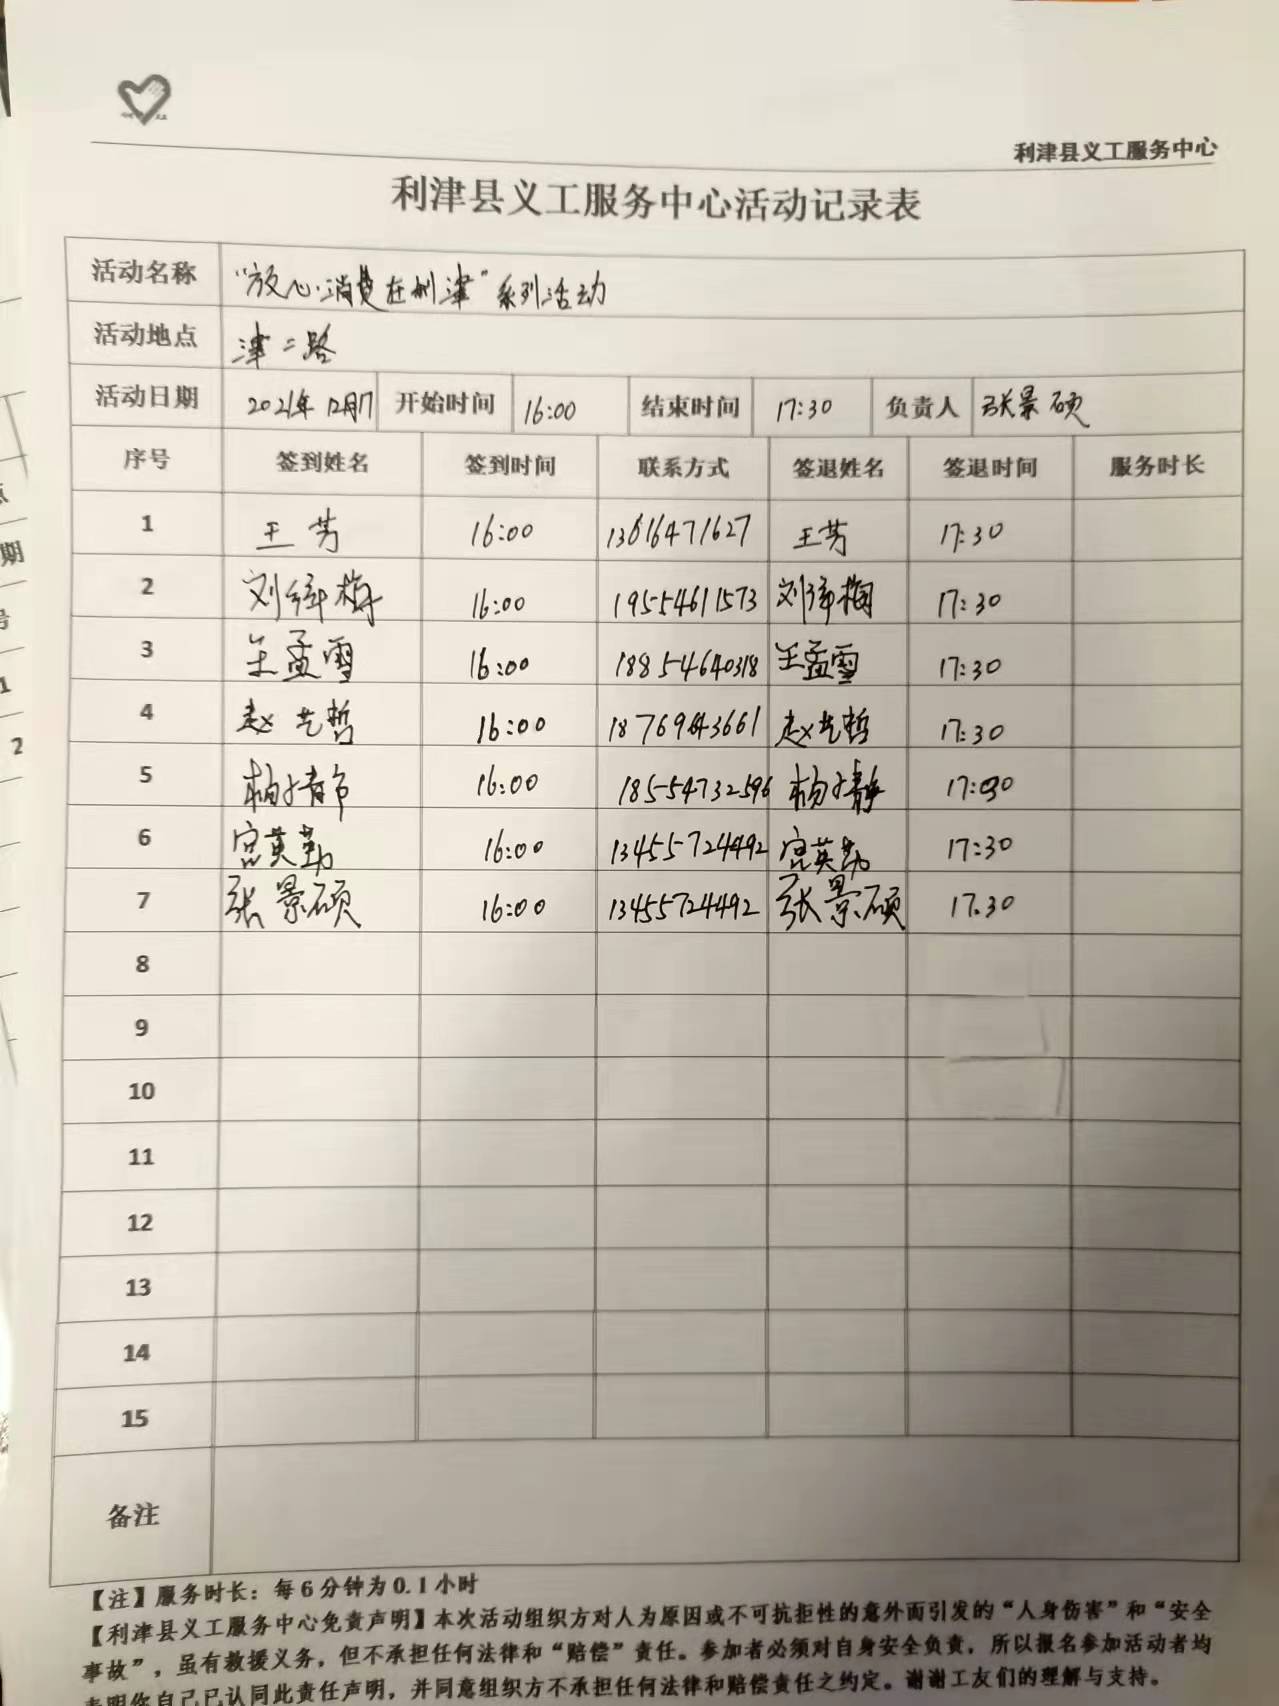 利津县义工服务中心
利津县义工服务中心活动记录表
活动名称 “放心消费在利津”系列活动
活动地点 津二路
活动日期 2021年12月17 开始时间 16:00 结束时间 17:30 负责人 张景硕
序号 签到姓名 签到时间 联系方式 签退姓名 签退时间 服务时长
1 王芳 16:00 13616471627 王芳 17:30
2 刘 梅 16:00 19554611573 刘 梅 17:30
3 王孟雪 16:00 18854640318 王孟雪 17:30
4 赵艺哲 16:00 赵艺哲 17:30
5 16:00 18554732596 17:30
6 宫英勤 16:00 13455724492 宫英勤 17:30
7 张景硕 16:00 13455724492 张景硕 17.30
8
9
10
11
12
13
14
15
备注
【注】服务时长：每6分钟为0.1小时
【利津县义工服务中心免责声明】本次活动组织方对人为原因或不可抗拒性的意外而引发的“人身伤害”和“安全
事故”，虽有救援义务，但不承担任何法律和“赔偿”责任。参加者必须对自身安全负责，所以报名参加活动者均
表明你自己已认同此责任声明，并同意组织方不承担任何法律和赔偿责任之约定。谢谢工友们的理解与支持。
期
号
1
2